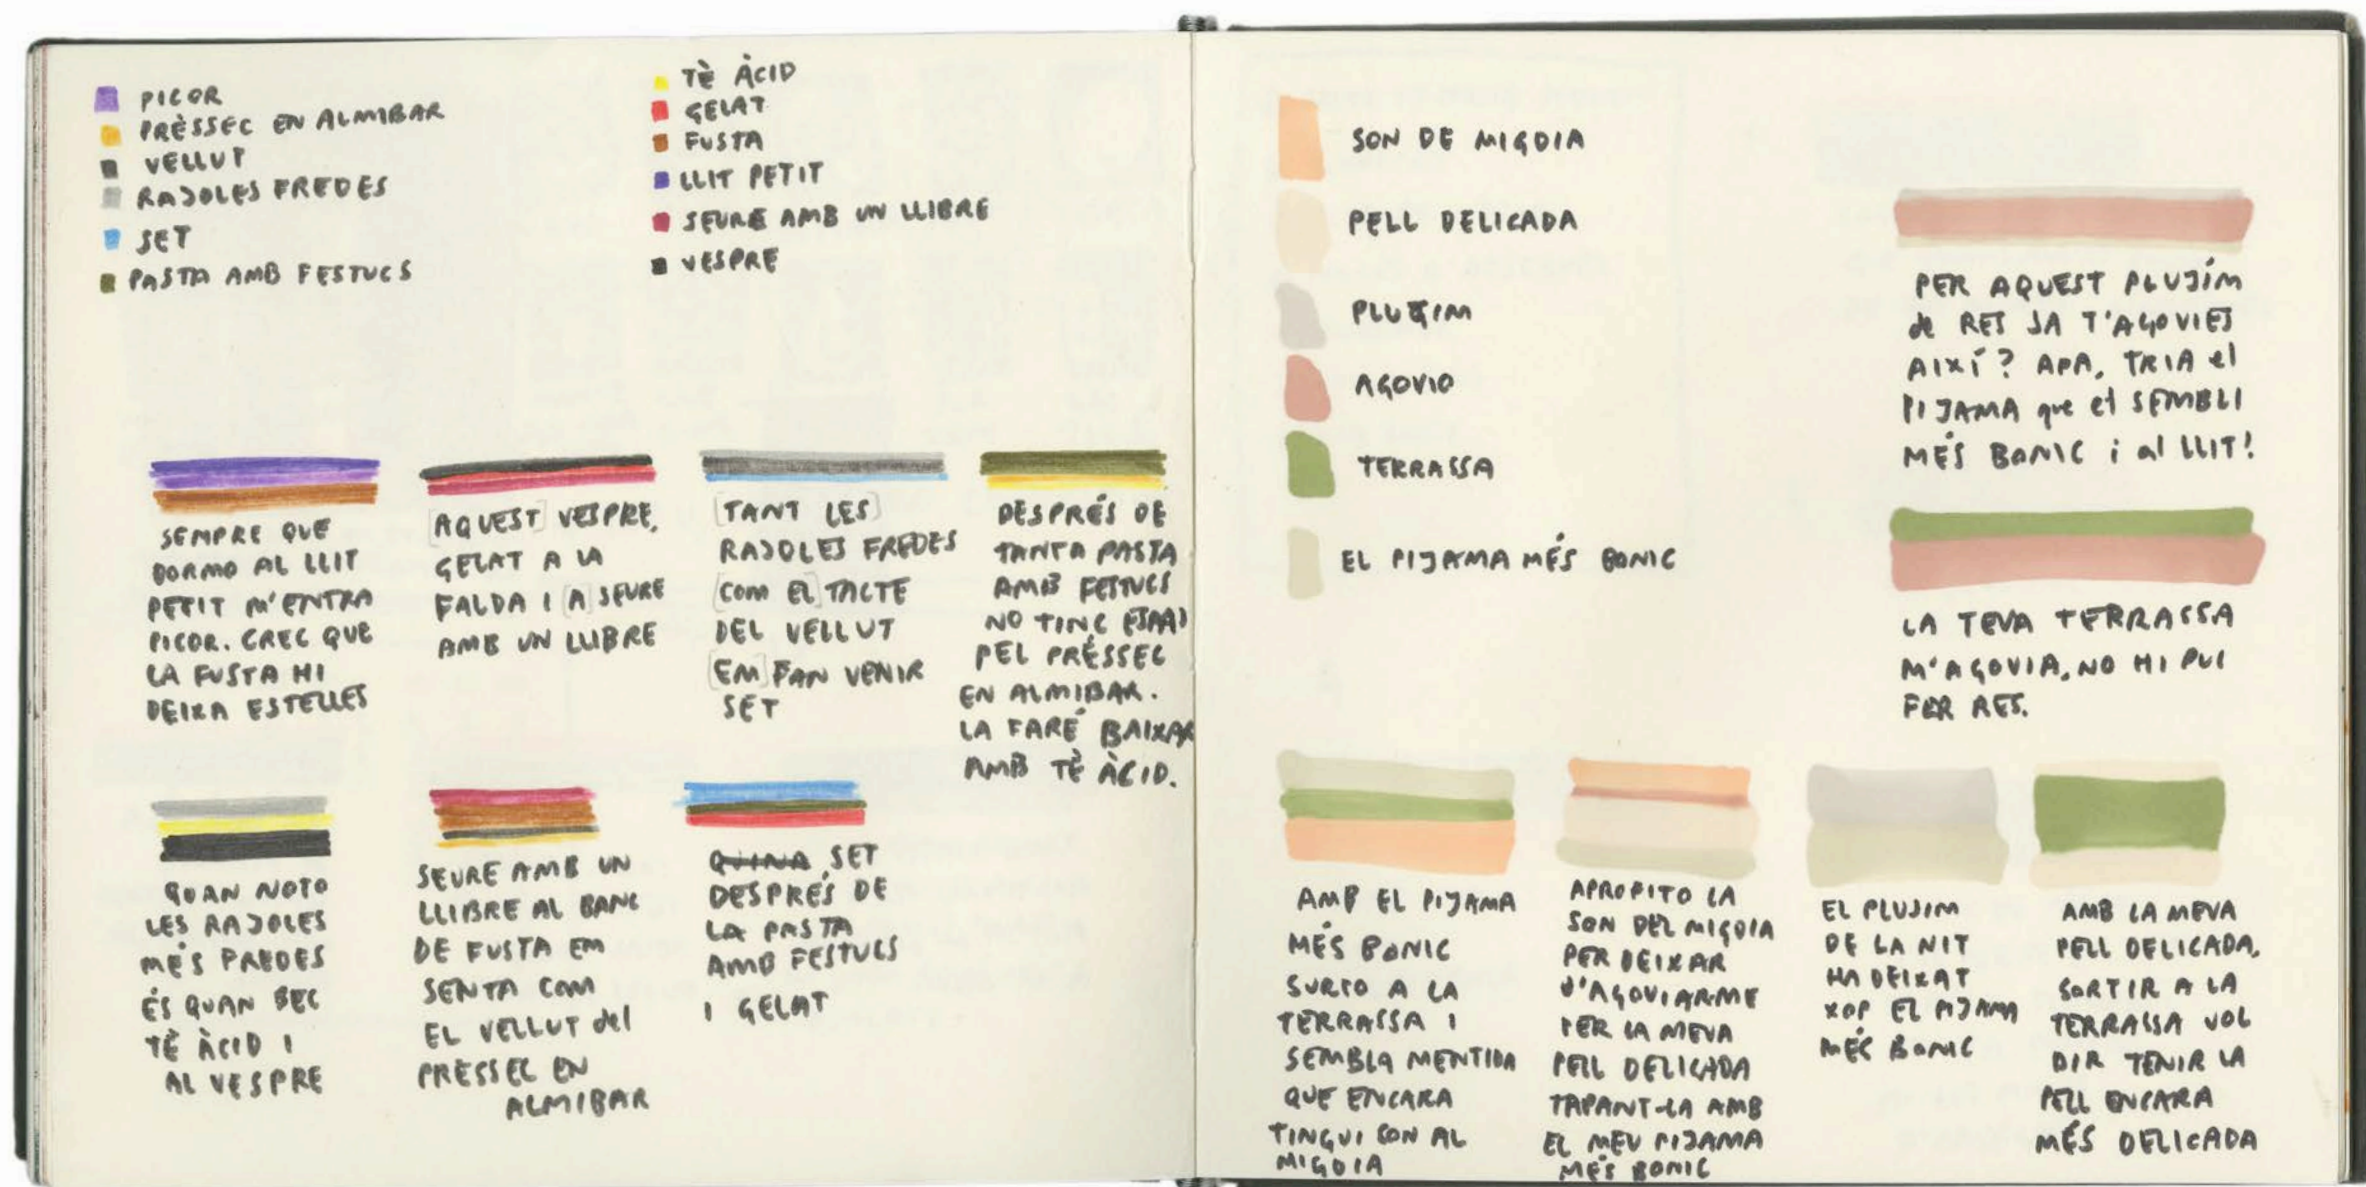 PICOR
PRÈSSEC EN ALMIBAR
VELLUT
RAJOLES FREDES
SET
PASTA AMB FESTUCS
TÈ ÀCID
GELAT
FUSTA
LLIT PETIT
SEURE AMB UN LLIBRE
VESPRE
SEMPRE QUE
DORMO AL LLIT
PETIT M'ENTRA
PICOR. CREC QUE
LA FUSTA HI
DEIXA ESTELLES
[AQUEST] VESPRE,
GELAT A LA
FALDA I [A] SEURE
AMB UN LLIBRE
[TANT LES]
RAJOLES FREDES
[COM EL] TACTE
DEL VELLUT
[EM] FAN VENIR
SET
DESPRÉS DE
TANTA PASTA
AMB FESTUCS
NO TINC ESPAI
PEL PRÉSSEC
EN ALMIBAR.
LA FARÉ BAIXAR
AMB TÈ ÀCID.
QUAN NOTO
LES RAJOLES
MÉS FREDES
ÉS QUAN BEC
TÈ ÀCID I
AL VESPRE
SEURE AMB UN
LLIBRE AL BANC
DE FUSTA EM
SENTA COM
EL VELLUT del
PRESSEC EN
ALMIBAR
QUINA SET
DESPRÉS DE
LA PASTA
AMB FESTUCS
I GELAT
SON DE MIGDIA
PELL DELICADA
PLUGIM
AGOVIO
TERRASSA
EL PIJAMA MÉS BONIC
PER AQUEST PLUJÍM
de RES JA T'AGOVIES
AIXÍ? APA, TRIA el
PIJAMA que et SEMBLI
MÉS BONIC i al LLIT!
LA TEVA TERRASSA
M'AGOVIA, NO HI PUC
FER RES.
AMB EL PIJAMA
MÉS BONIC
SURTO A LA
TERRASSA I
SEMBLA MENTIDA
QUE ENCARA
TINGUI SON AL
MIGDIA
APROFITO LA
SON DEL MIGDIA
PER DEIXAR
D'AGOVIARME
PER LA MEVA
PELL DELICADA
TAPANT-LA AMB
EL MEU PIJAMA
MÉS BONIC
EL PLUJIM
DE LA NIT
HA DEIXAT
XOP EL PIJAMA
MÉS BONIC
AMB LA MEVA
PELL DELICADA,
SORTIR A LA
TERRASSA VOL
DIR TENIR LA
PELL ENCARA
MÉS DELICADA